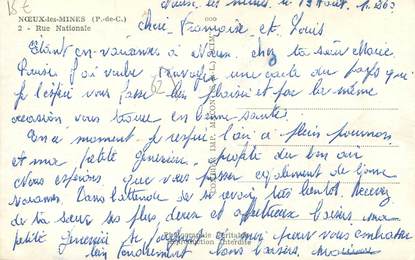 15€
NŒUX-les-MINES (P.-de-C.)
2 - Rue Nationale
les mines le 13 Août
Chère Françoise et Louis
Étant en vacances à Nœux chez ta sœur Marie
j'ai voulu t'envoyer une carte du pays que
je l'espère vous fasse bien plaisir et par la même
occasion vous trouve en bonne santé.
En ce moment je respire l'air à plein poumons
et ma petite profite du bon air
Nous espérons que vous passez également de bonne
vacances. Dans l'attente de se revoir très bientôt. Recevez
de ta sœur ses plus doux et affectueux baisers ma
petite se joint à moi pour vous embrasser
bien tendrement bons baisers.
Photographie Véritable
Reproduction Interdite